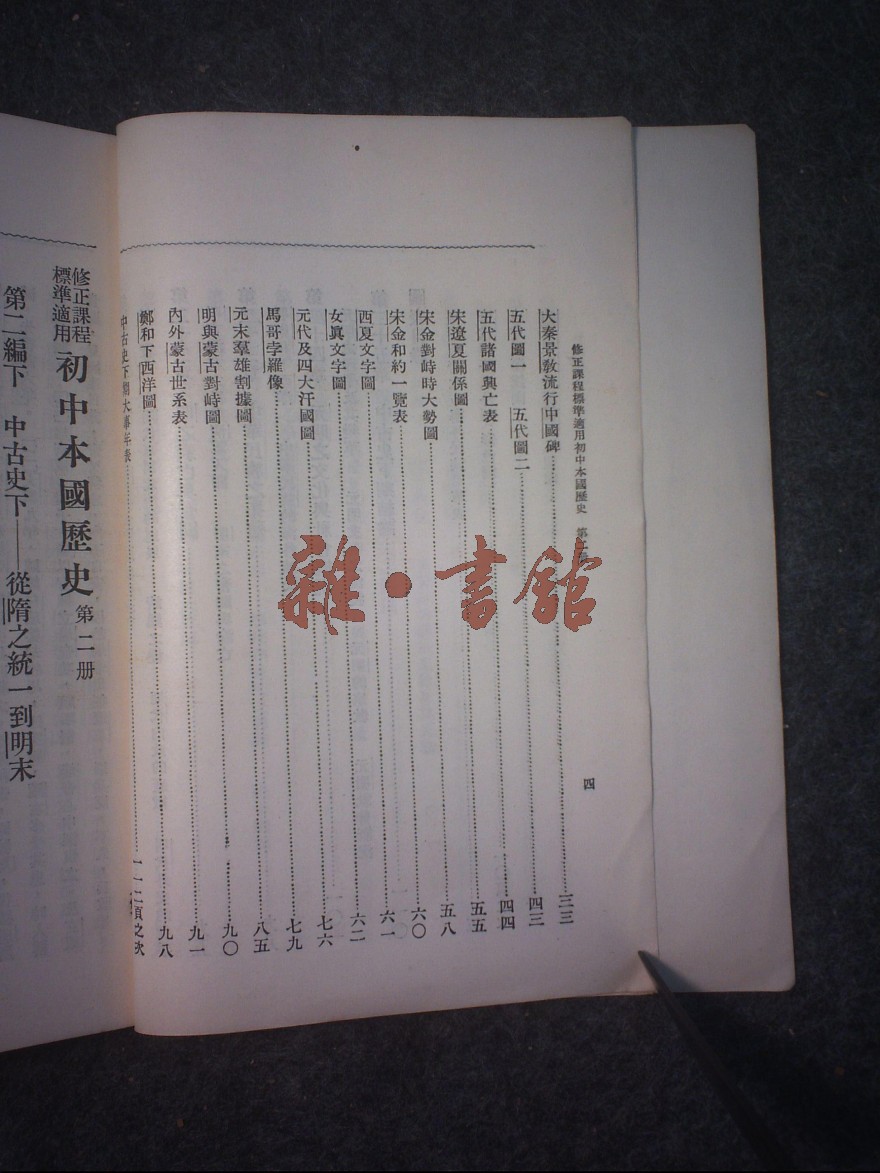 修正課程標準適用初中本國歷史　第二册
四
大秦景教流行中國碑……三三
五代圖一　五代圖二……四三
五代諸國興亡表……四四
朱遼夏關係圖……五五
朱金對峙時大勢圖……五八
宋金和約一覽表……六〇
西夏文字圖……六一
女眞文字圖……六二
元代及四大汗國圖……七六
馬哥孛羅像……七九
元末羣雄割據圖……八五
明與蒙古對峙圖……九〇
內外蒙古世系表……九一
鄭和下西洋圖……九八
中古史下期大事年表……一一二頁之次
修正課程標準適用　初中本國歷史　第二册
第二編下　中古史下——從隋之統一到明末
雜·書館